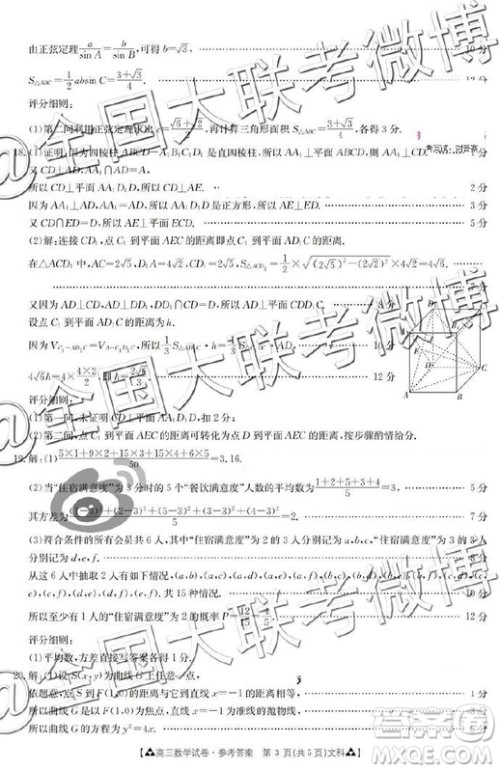 由正弦定理 a/sin A = b/sin B,可得 b=√3, 10分
S△ABC=1/2 absin C=(3+√3)/4. 12分
评分细则:
(1)第二问利用正弦定理求出 c=(√6+√2)/2,再计算三角形面积 S△ABC=(3+√3)/4,各得3分.
18.(1)证明:因为四棱柱 ABCD-A₁B₁C₁D₁ 是直四棱柱,所以 AA₁⊥平面 ABCD,则 AA₁⊥CD.
又 CD⊥AD,AA₁∩AD=A,
所以 CD⊥平面 AA₁D₁D,所以 CD⊥AE. 2分
因为 AA₁⊥AD,AA₁=AD,所以 AA₁D₁D 是正方形,所以 3分
又 CD∩ED=D,所以 AE⊥平面 ECD. 5分
(2)解:连接 CD₁,点 C₁ 到平面 AEC 的距离即点 C₁ 到平面
在△ACD₁ 中,AC=2√5,D₁A=4√2,CD₁=2√5,S△ACD₁=1/2×√((2√5)²-(2√2)²)×4√2=4√6.
又因为 AD⊥CD,AD⊥DD₁,DD₁∩CD=D,所以 AD⊥平面 CDD₁C₁.
设点 C₁ 到平面 AD₁C 的距离为 h.
因为 10分
12分
评分细则:
(1)第一问,未证明 扣2分;
(2)第二问,点 C₁ 到平面 AEC 的距离可转化为点 D 到平面 AEC 的距离,按步骤酌情给分.
19.解:(1)(5×1+9×2+15×3+15×4+6×5)/50=3.16.
(2)当“住宿满意度”为3分时的5个“餐饮满意度”人数的平均数为 (1+2+5+3+4)/5=3, 5分
其方差为 =2. 7分
(3)符合条件的所有会员共6人,其中“住宿满意度”为2的3人分别记为 a,b,c,“住宿满意度”为3的3人
分别记为 d,e,f. 8分
从这6人中抽取2人有如下情况,(a,b),(a,c),(a,d),(a,e),(a,f),(b,c),(b,d),(b,e),(b,f),(c,d),(c,
e),(c,f),(d,e),(d,f),(e,f),共15种情况. 10分
所以至少有1人的“住宿满意度”为2的概率 P=12/15=4/5. 12分
评分细则:
(1)平均数,方差直接写答案各得1分.
20.解:(1)设 S(x,y) 为曲线 G 上任意一点,
依题意,点 S 到 F(1,0) 的距离与它到直线 x=-1 的距离相等, 1分
所以曲线 G 是以 F(1,0) 为焦点,直线 x=-1 为准线的抛物线, 3分
所以曲线 G 的方程为 y²=4x. 4分
高三数学试卷·参考答案 第3页(共5页)文科
@全国大联考微博
@全国大联考微博